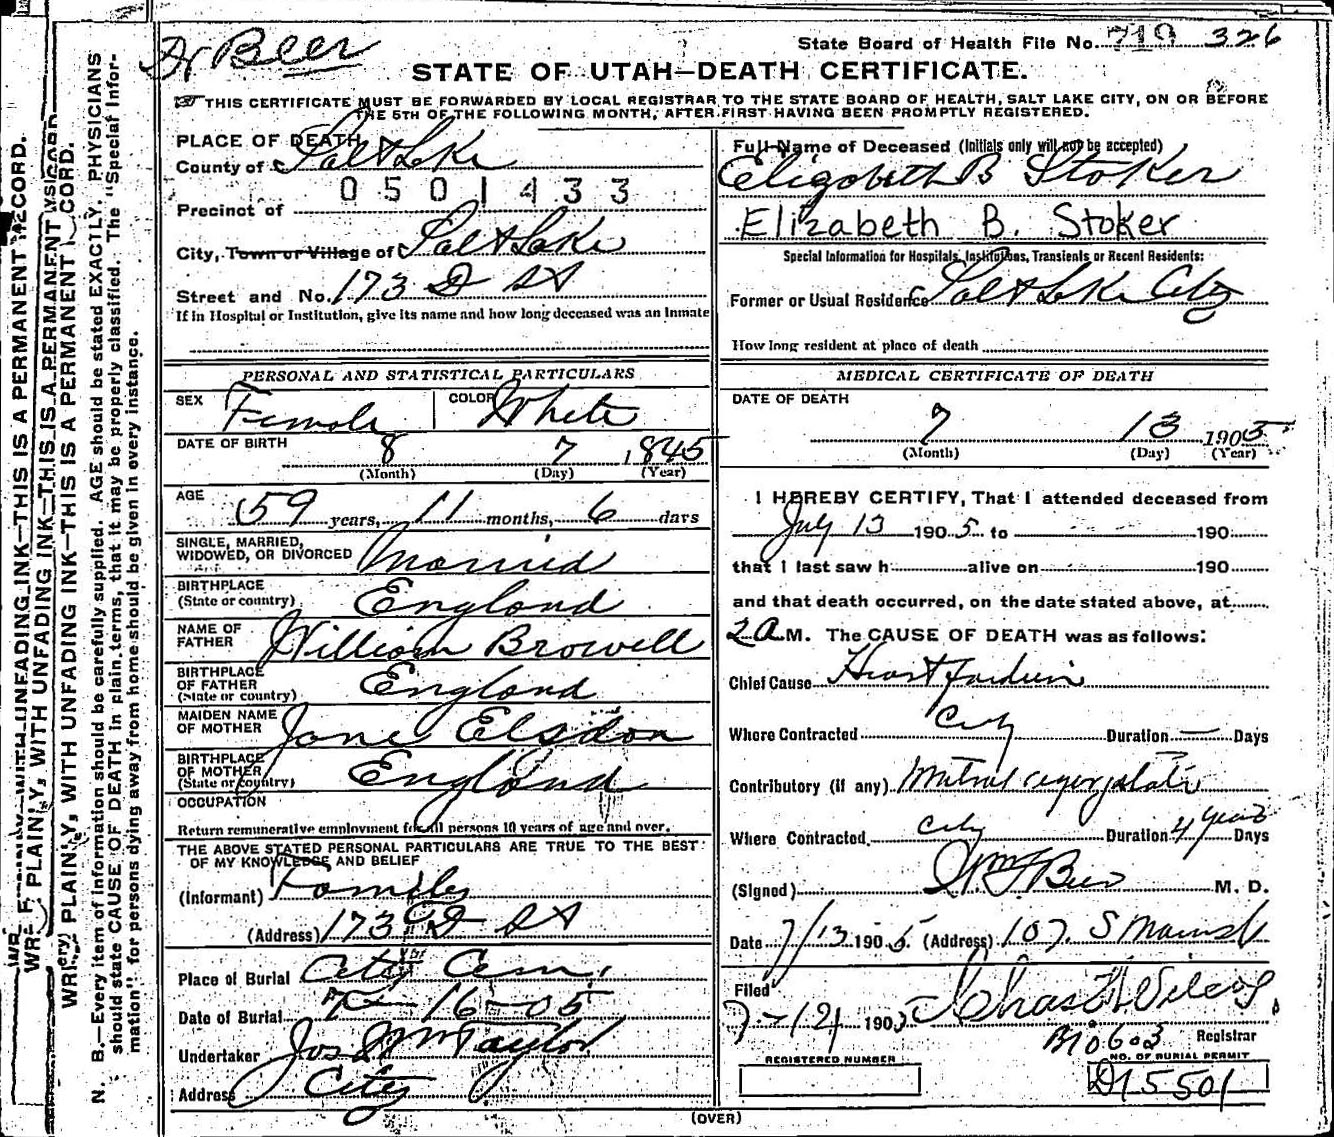 Dr Beer
State Board of Health File No. 719 326
STATE OF UTAH—DEATH CERTIFICATE.
THIS CERTIFICATE MUST BE FORWARDED BY LOCAL REGISTRAR TO THE STATE BOARD OF HEALTH, SALT LAKE CITY, ON OR BEFORE
THE 5TH OF THE FOLLOWING MONTH, AFTER FIRST HAVING BEEN PROMPTLY REGISTERED.
PLACE OF DEATH
County of Salt Lake
0501433
Precinct of
City, Town or Village of Salt Lake
Street and No. 173 D St
If in Hospital or Institution, give its name and how long deceased was an Inmate
Full Name of Deceased (Initials only will not be accepted)
Elizabeth B Stoker
Elizabeth B. Stoker
Special Information for Hospitals, Institutions, Transients or Recent Residents:
Former or Usual Residence Salt Lake City
How long resident at place of death
PERSONAL AND STATISTICAL PARTICULARS
SEX Female COLOR White
DATE OF BIRTH
8 7 1845
(Month) (Day) (Year)
AGE
59 years, 11 months, 6 days
SINGLE, MARRIED,
WIDOWED, OR DIVORCED Married
BIRTHPLACE
(State or country) England
NAME OF
FATHER William Browell
BIRTHPLACE
OF FATHER
(State or country) England
MAIDEN NAME
OF MOTHER Jane Elsdon
BIRTHPLACE
OF MOTHER
(State or country) England
OCCUPATION
Return remunerative employment for all persons 10 years of age and over.
THE ABOVE STATED PERSONAL PARTICULARS ARE TRUE TO THE BEST
OF MY KNOWLEDGE AND BELIEF
(Informant) Family
(Address) 173 D St
Place of Burial City Cem.
Date of Burial 7-16-05
Undertaker Jos Wm Taylor
Address City
MEDICAL CERTIFICATE OF DEATH
DATE OF DEATH
7 13 1905
(Month) (Day) (Year)
I HEREBY CERTIFY, That I attended deceased from
July 13 1905 to 190
that I last saw h alive on 190
and that death occurred, on the date stated above, at
2 A M. The CAUSE OF DEATH was as follows:
Chief Cause Heart failure
Where Contracted City Duration — Days
Contributory (if any) Mitral regurgitation
Where Contracted City Duration 4 years Days
(Signed) Wm F Beer M. D.
Date 7/13 1905 (Address) 107 S Main St
Filed
7-14 1905 Chas W Wilcox,
Registrar
B10603
REGISTERED NUMBER
NO. OF BURIAL PERMIT
D15501
(OVER)
WRITE PLAINLY, WITH UNFADING INK—THIS IS A PERMANENT RECORD.
WRITE PLAINLY, WITH UNFADING INK—THIS IS A PERMANENT RECORD.
WRITE PLAINLY, WITH UNFADING INK—THIS IS A PERMANENT RECORD.
N. B.—Every item of information should be carefully supplied. AGE should be stated EXACTLY. PHYSICIANS
should state CAUSE OF DEATH in plain terms, that it may be properly classified. The "Special Infor-
mation" for persons dying away from home should be given in every instance.